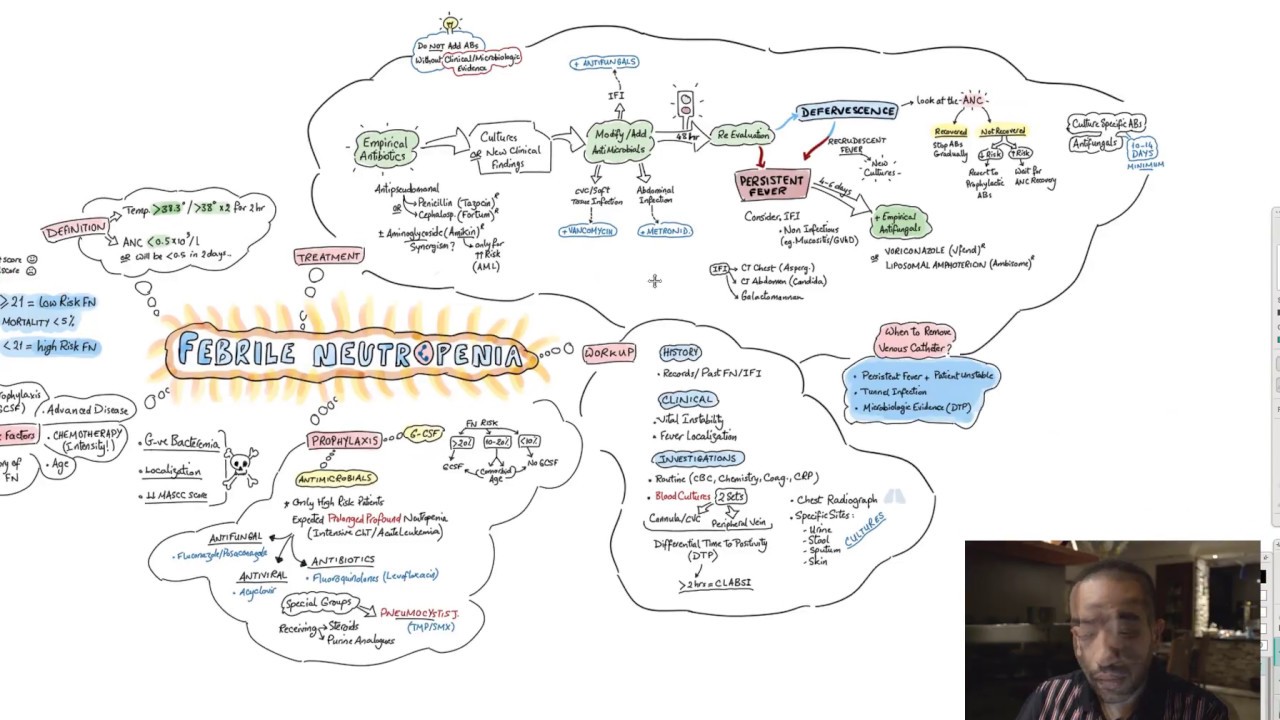 Do NOT Add ABs
Without Clinical/Microbiologic
Evidence
Empirical
Antibiotics
Cultures
OR New Clinical
Findings
+ ANTIFUNGALS
IFI
Modify/Add
AntiMicrobials
CVC/Soft
Tissue Infection
+ VANCOMYCIN
Abdominal
Infection
+ METRONID.
48hr
Re Evaluation
DEFERVESCENCE
RECRUDESCENT
FEVER
New
Cultures
Look at the ANC
Recovered
Stop ABs
Gradually
Not Recovered
↓Risk
↑Risk
Revert to
Prophylactic
ABs
Wait for
ANC Recovery
Culture Specific ABs
Antifungals
10-14
DAYS
MINIMUM
PERSISTENT
FEVER
4-6 days
+ Empirical
Antifungals
Consider, IFI
• Non Infectious
(eg. Mucositis/GVHD)
VORICONAZOLE (Vfend)R
OR LIPOSOMAL AMPHOTERICIN (Ambisome)R
IFI → CT Chest (Asperg.)
→ CT Abdomen (Candida)
→ Galactomannan
Antipseudomonal
Penicillin (Tazocin)R
OR
Cephalosp. (Fortum)R
± Aminoglycoside (Amikin)R
Synergism? → only for
↑↑ Risk
(AML)
TREATMENT
DEFINITION
Temp. >38.3° / >38° x2 for 2hr
ANC <0.5x10⁹/L
OR will be <0.5 in 2 days..
score
score
≥ 21 = Low Risk FN
MORTALITY <5%
< 21 = high Risk FN
FEBRILE NEUTROPENIA
rophylaxis
GCSF)
• Advanced Disease
Factors
• CHEMOTHERAPY
(Intensity!)
ory of
FN
• Age
• G-ve Bacteremia
• Localization
• ↓↓ MASCC score
PROPHYLAXIS
G-CSF
FN RISK
>20%
10-20%
<10%
GCSF
Comorbid
Age
No GCSF
ANTIMICROBIALS
* Only High Risk Patients
Expected Prolonged Profound Neutropenia
(Intensive CHT/Acute Leukemia)
ANTIFUNGAL
• Fluconazole/Posaconazole
ANTIVIRAL
• Acyclovir
ANTIBIOTICS
• Fluoroquinolones (Levofloxacin)
Special Groups
PNEUMOCYSTIS J.
(TMP/SMX)
Receiving → Steroids
Purine Analogues
WORKUP
HISTORY
• Records/Past FN/IFI
CLINICAL
• Vital Instability
• Fever Localization
INVESTIGATIONS
• Routine (CBC, Chemistry, Coag., CRP)
• Blood Cultures 2 Sets
Cannula/CVC
Peripheral Vein
Differential Time To Positivity
(DTP)
>2hrs = CLABSI
• Chest Radiograph
• Specific Sites:
- Urine
- Stool
- Sputum
- Skin
CULTURES
When to Remove
Venous Catheter?
• Persistent Fever + Patient Unstable
• Tunnel Infection
• Microbiologic Evidence (DTP)